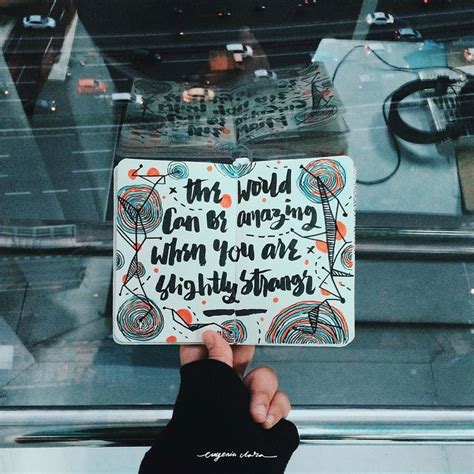 the World
Can Be amazing
when you are
slightly strange
eugenia clara